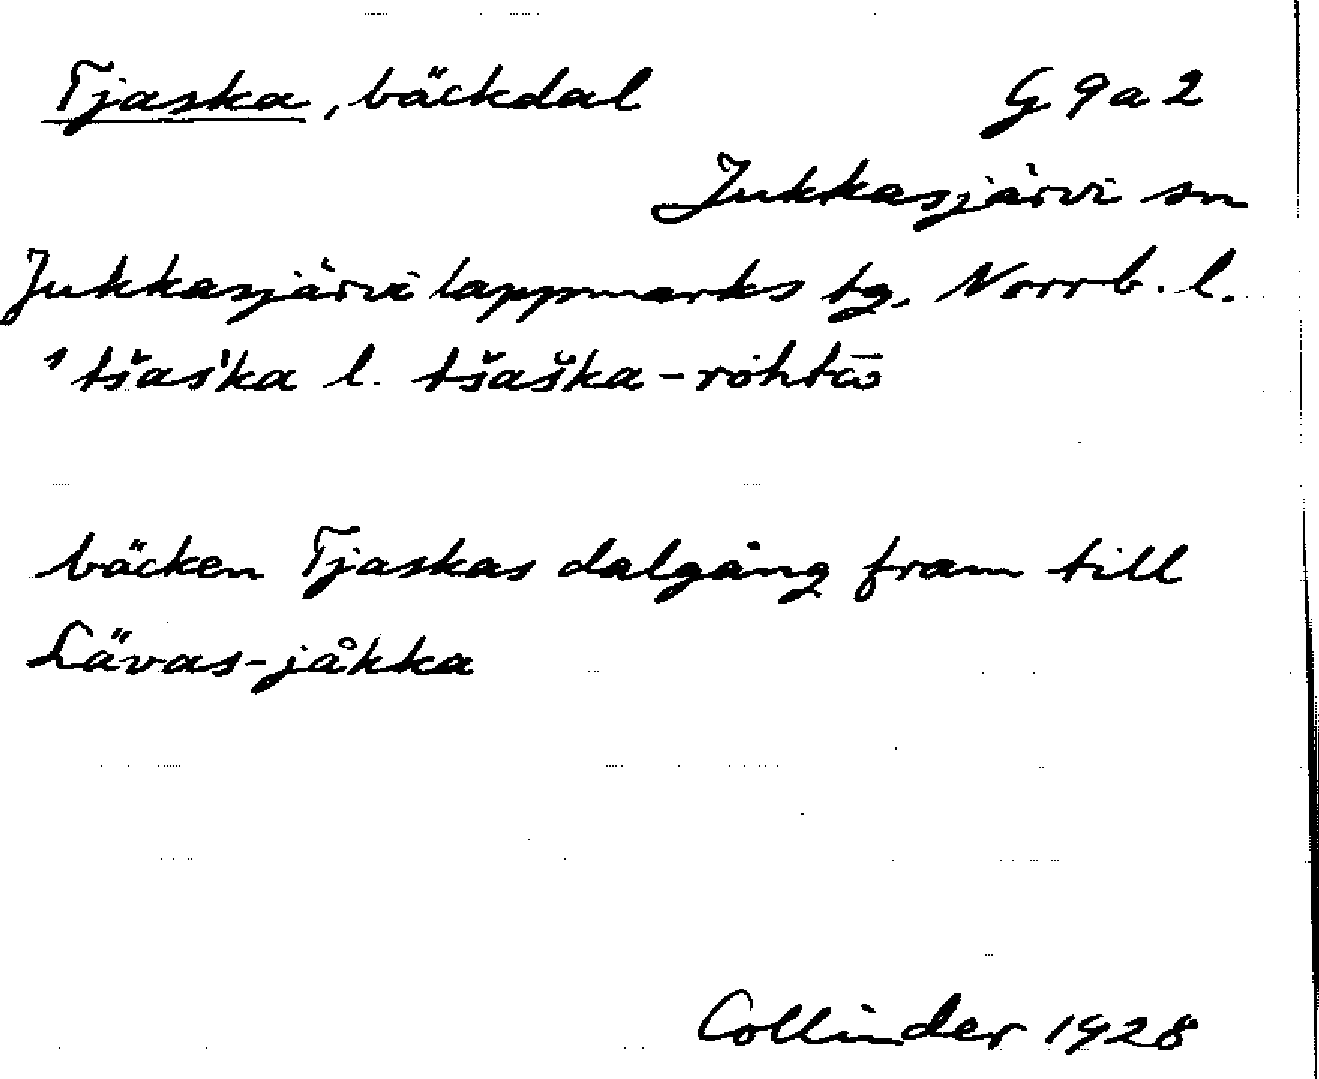 Tjaska, bäckdal G 9 a 2
Jukkasjärvi sn
Jukkasjärvi lappmarks tg, Norrb. l.
¹ tšaška l. tšaška-rohtō
bäcken Tjaskas dalgång fram till
Lävas-jåkka
Collinder 1928